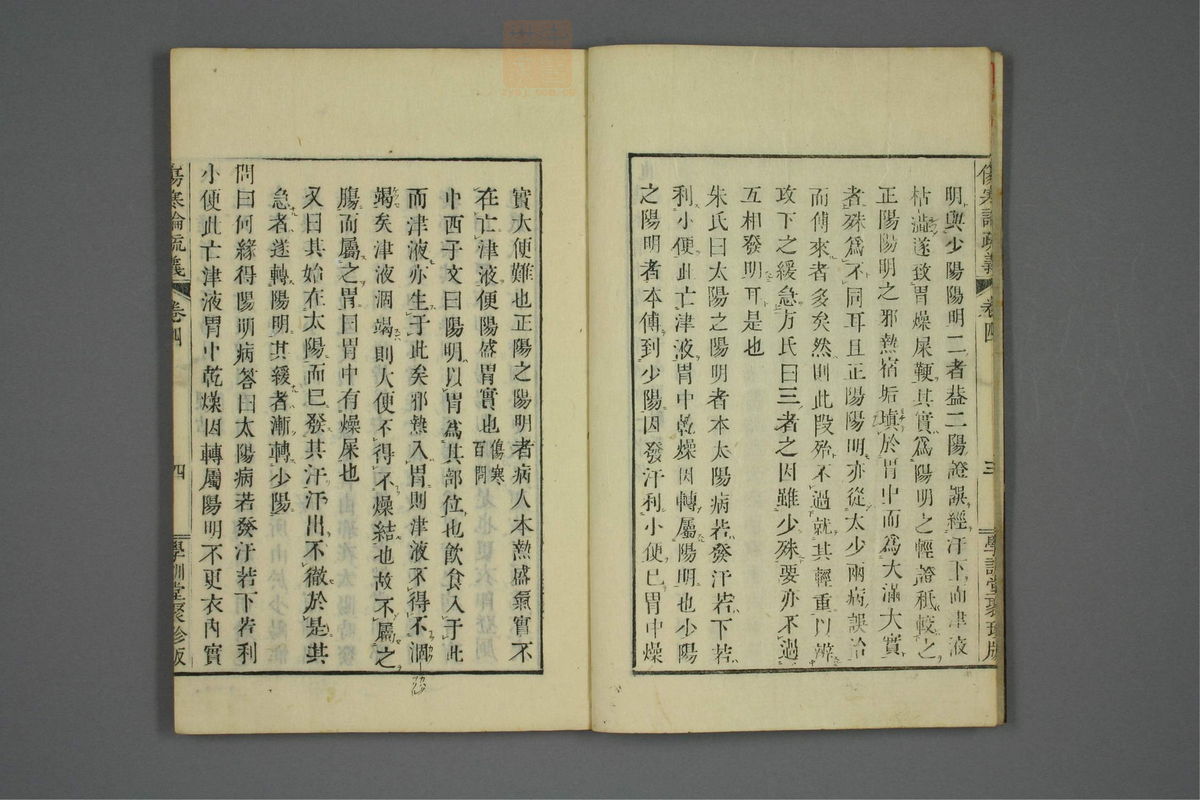 傷寒論疏義
卷四
三
學訓堂聚珍版
明與少陽陽明二者葢二陽證誤經汗下而津液
枯澁遂致胃燥屎鞕其實爲陽明之輕證秖較之
正陽陽明之邪熱宿垢塡於胃中而爲大滿大實
者殊爲不同耳且正陽陽明亦從太少兩病誤治
而傳來者多矣然則此段殆不過就其輕重以辨
攻下之緩急方氏曰三者之因雖少殊要亦不過
互相發明耳是也
朱氏曰太陽之陽明者本太陽病若發汗若下若
利小便此亡津液胃中乾燥因轉屬陽明也少陽
之陽明者本傳到少陽因發汗利小便已胃中燥
實大便難也正陽之陽明者病人本熱盛氣實不
在亡津液便陽盛胃實也傷寒百問
中西子文曰陽明以胃爲其部位也飮食入于此
而津液亦生于此矣邪熱入胃則津液不得不涸
竭矣津液涸竭則大便不得不燥結也故不屬之
膓而屬之胃曰胃中有燥屎也
又曰其始在太陽而已發其汗汗出不徹於是其
急者遂轉陽明其緩者漸轉少陽
問曰何緣得陽明病答曰太陽病若發汗若下若利
小便此亡津液胃中乾燥因轉屬陽明不更衣內實
傷寒論疏義
卷四
四
學訓堂聚珍版